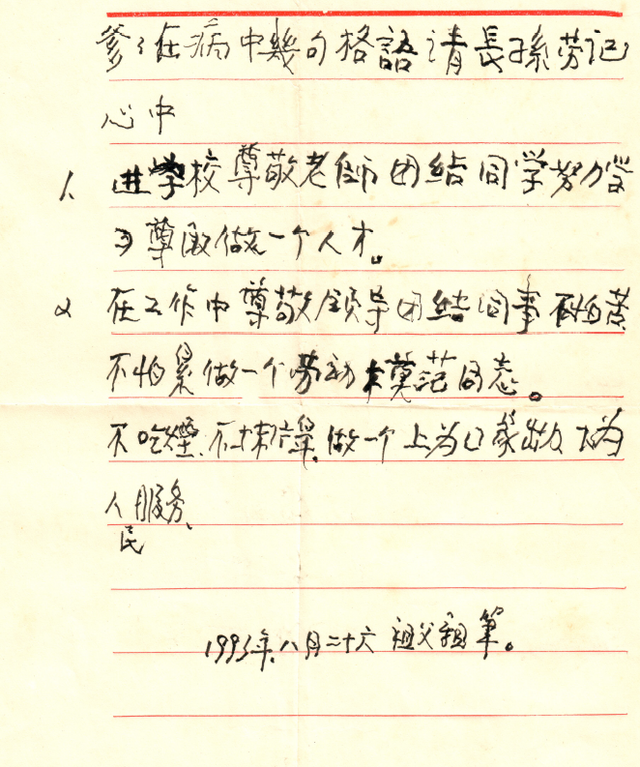 爹〻在病中幾句格語请長孫劳记
心中
1. 进学校尊敬老师团结同学努力学
习尊敬做一个人才。
2 在工作中尊敬领导团结同事不怕苦
不怕累做一个劳动模范同志。
不吃烟.不抹牌.做一个上为国家出力下为
人民服务、
1993年.八月二十六 祖父親筆。